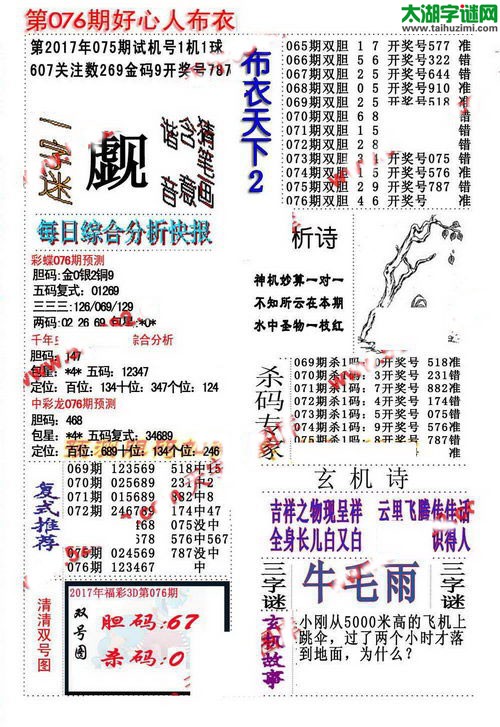 第076期好心人布衣
太湖字谜网
http://www.taihuzimi.com
第2017年075期试机号1机1球
607关注数269金码9开奖号787
一字迷
觑
猪笔画
含意
谐音
布衣天下2
065期双胆 1 7 开奖号577 准
066期双胆 5 6 开奖号322 错
067期双胆 2 5 开奖号644 错
068期双胆 0 5 开奖号910 准
069期双胆 2 5 开奖号518 准
070期双胆 6 8
071期双胆 1 5
072期双胆 2 8
073期双胆 3 1 开奖号075 错
074期双胆 1 5 开奖号576 错
075期双胆 2 9 开奖号787 错
076期双胆 4 6 开奖号
每日综合分析快报
彩蝶076期预测
胆码: 金0银2铜9
五码复式: 01269
三三三: 126/069/129
两码: 02 26 69 包星: *0*
千年
综合分析
胆码: 147
包星: *4* 五码: 12347
定位: 百位: 134十位: 347个位: 124
中彩龙076期预测
胆码: 468
包星: *4* 五码: 34689
定位: 百位: 689十位: 134个位: 246
析诗
神机妙算一对一
不知所云在本期
水中圣物一枝红
杀码专家
069期杀1码: 0开奖号 518准
070期杀1码: 9开奖号 231错
071期杀1码: 7开奖号 882准
072期杀1码: 4开奖号 174错
073期杀1码: 5开奖号 075错
074期杀1码: 9开奖号 576准
075期杀1码: 0开奖号 787准
076期杀1码: 5开奖号
复式推荐
069期 123569 518中15
070期 025689 231中2
071期 045678 882中8
072期 246789 174中47
168 075没中
568 576没中
075期 024569 787没中
076期 123467
玄机诗
吉祥之物现呈祥 云里飞腾传佳话
全身长儿白又白 识得人
清清双号图
2017年福彩3D第076期
双号图
胆码:67
杀码:0
三字谜
牛毛雨
三字谜
玄机故事
小刚从5000米高的飞机上
跳伞，过了两个小时才落
到地面，为什么？